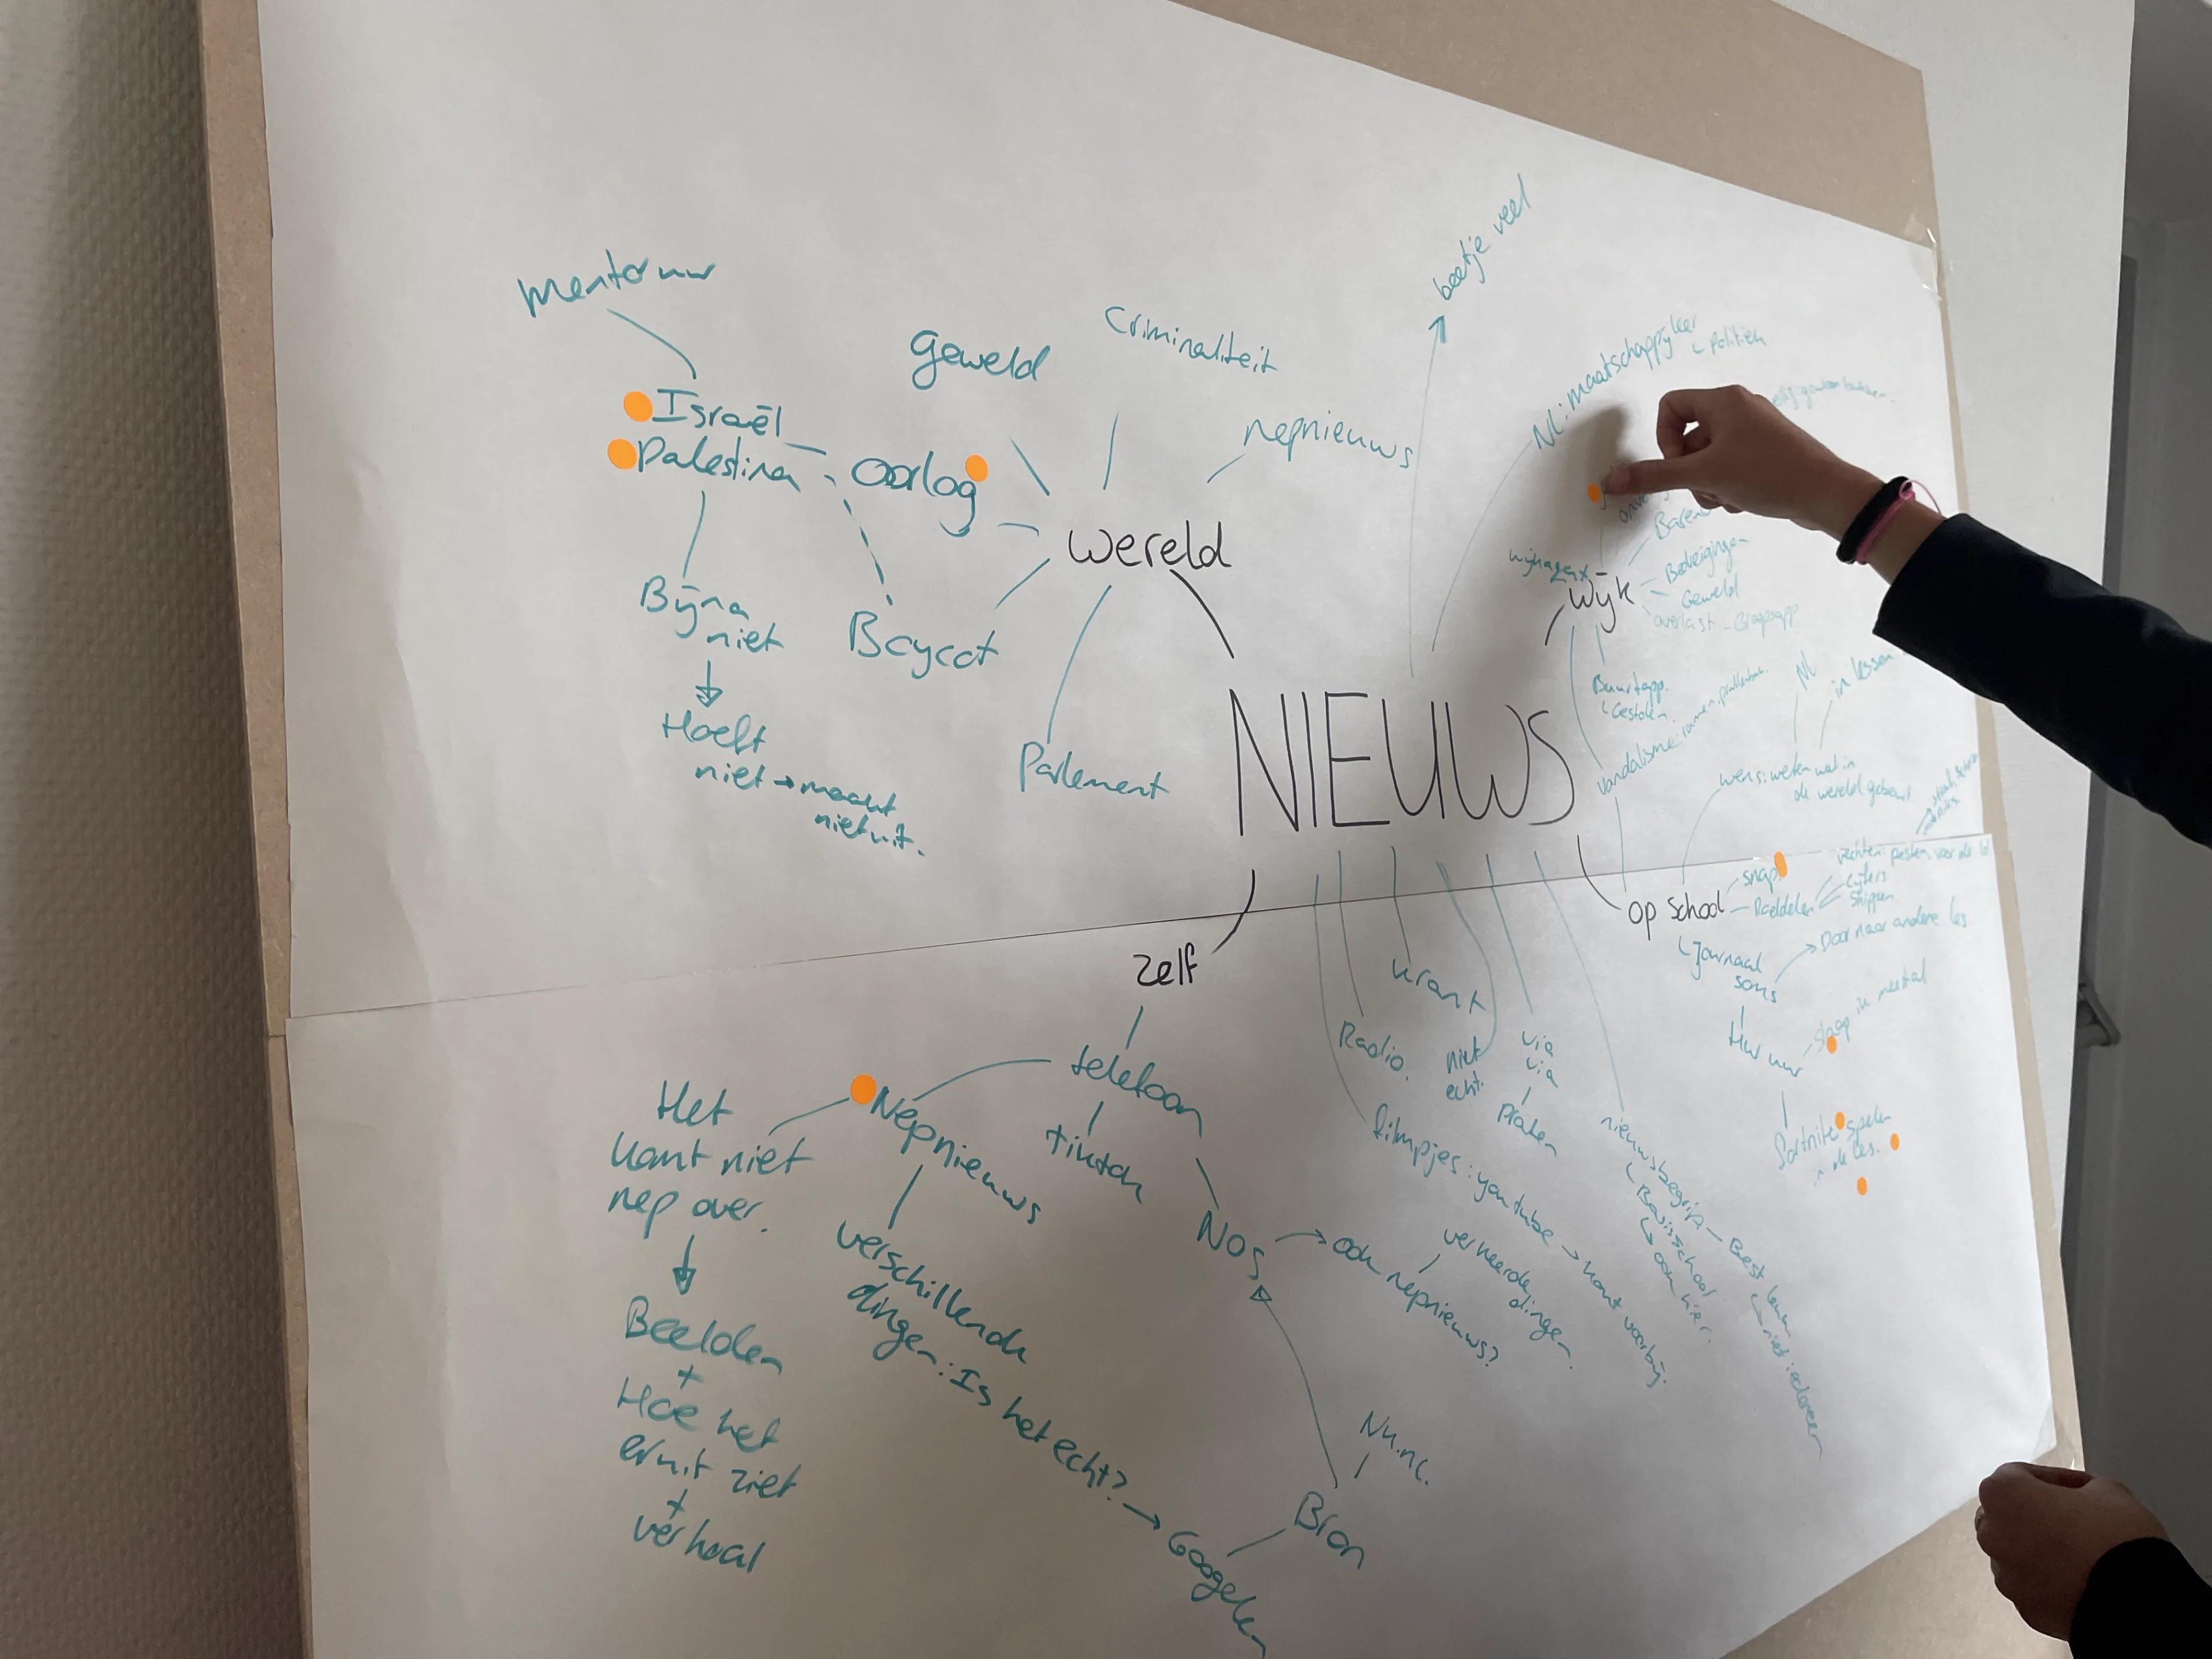 mentoruur
Israël
Palestina
Bijna
niet
Hoeft
niet → maakt
niet uit.
Oorlog
Geweld
Criminaliteit
nepnieuws
wereld
Boycot
Parlement
beetje veel
NL: maatschappijleer
Politiek
wijkagent
Wijk
Bedreigingen
Geweld
overlast - Groepsapp
Buurtapp.
Gestolen
vandalisme: ramen, prullenbak.
NIEUWS
NL
in lessen
wens: weten wat in
de wereld gebeurt
op school
snap
Roddelen
vechten: pesten voor de lol
cijfers
Shippen
Journaal
soms
Door naar andere les
HW uur
slaap ik meestal
Fortnite spelen
in de les.
zelf
telefoon
tiktok
Nepnieuws
Het
komt niet
nep over.
Beelden
+
Hoe het
eruit ziet
+
verhaal
verschillende
dingen: Is het echt? → Googelen
NOS
ook nepnieuws?
verkeerde
dingen.
Bron
Nu.nl.
krant
Radio.
niet
echt.
via
via
praten
filmpjes: youtube → komt voorbij.
nieuwsbegrip - Best leuk
niet iedereen
Basisschool
ook hier.